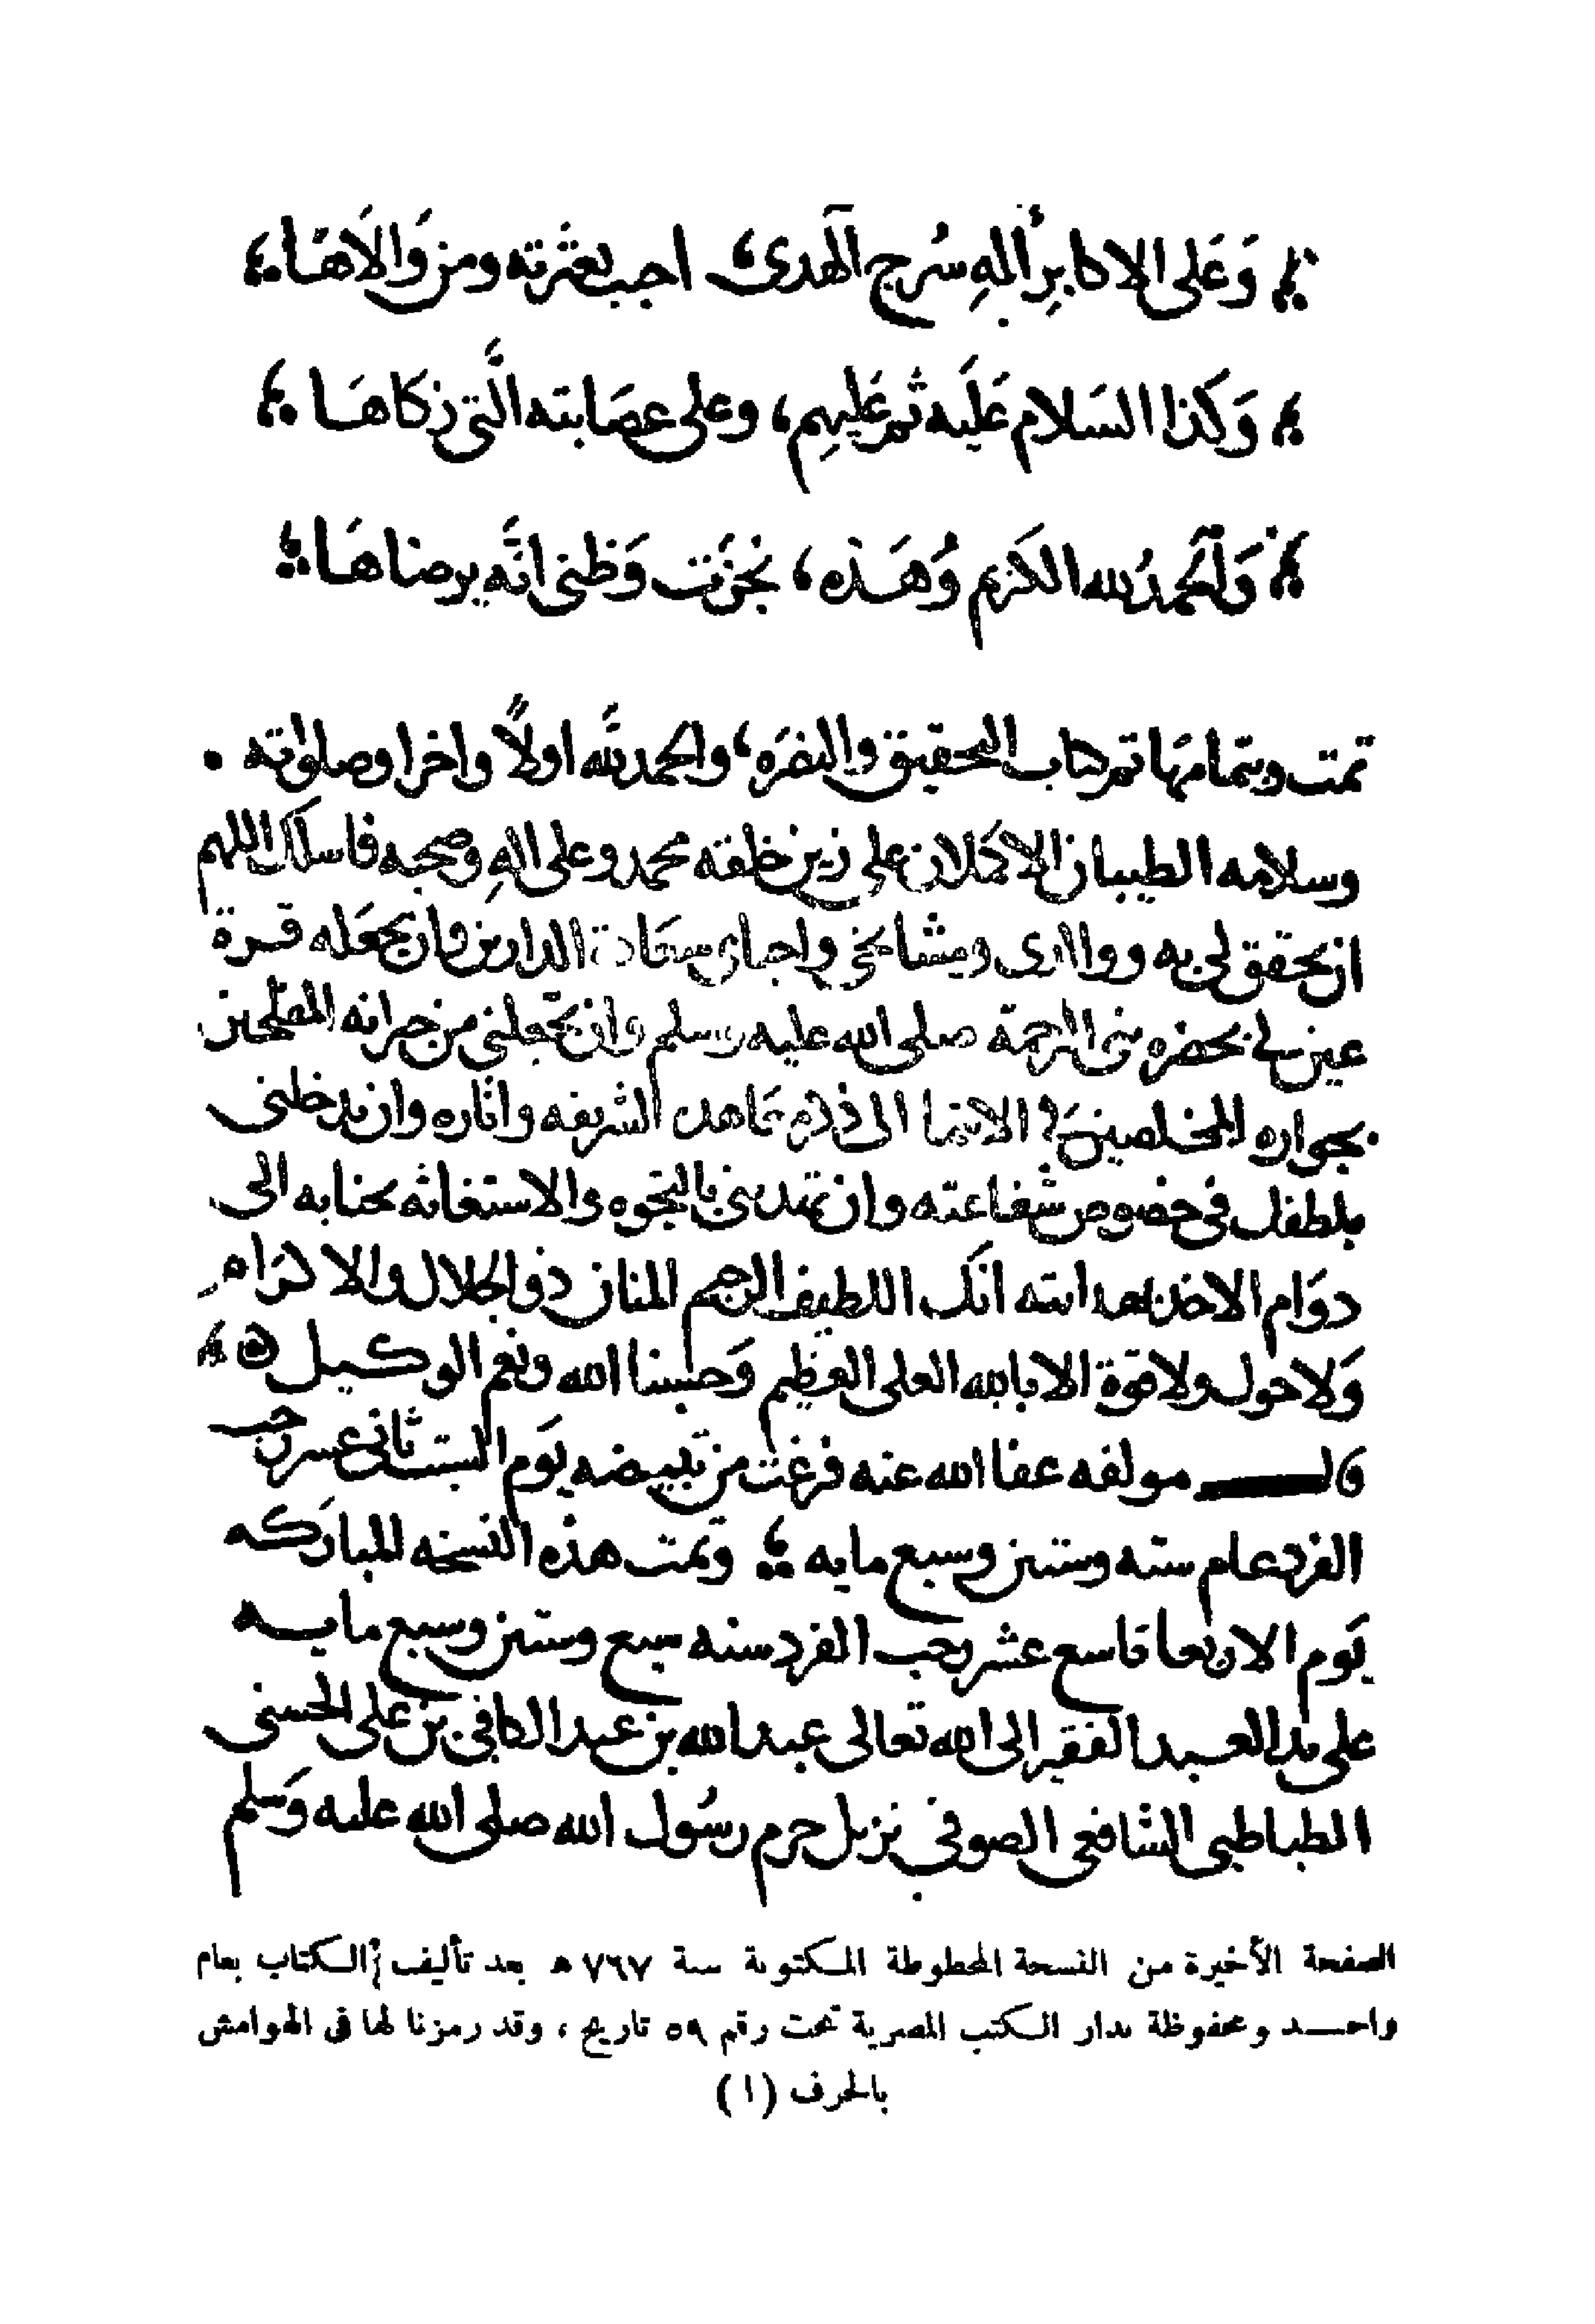 وَعَلى الاكابر أله سُرج الهدى، احبب بعترته ومن وَالاهَا
وَكذا السَلام عَليَه ثم عَليهِم، وعلى عصَابته الَّتى زكاهَا
وَالحمدُ لله الكَريم وَهَذه، نجزَت وَظنى انَّه يرضاهَا
تمت وبتمامهَا تم كتاب التحقيق والنصَره، والحمد لله اولاً واخرا وصلواته
وسلامه الطيبان الاكملان على زين خلقه محمد وعلى الهِ وصحبه فاسلك اللهم
ان يحقق لى به ووالدى ومشايخي واحبائ سعَادة الدارين وان يجعَله قرة
عين لى بحضره نبى الرحمة صلى الله عليه وسلم وان تجعلنى من جيرانه المفلحين
بجواره المخلصين في الانتما الى معَاهده الشريفه واثاره وان يدخلنى
بلطفك فى خصوص شفاعته وان تمدنى بالتوجه والاستغاثه بجنابه الى
دوَام الاخذ بهدايته انَك اللطيف الرحيم المنان ذو الجلال والاكرَام
وَلا حول ولا قوة الا بالله العلى العظيم وَحسبنا الله ونعم الوكيل
قال مولفه عفا الله عنه فرغت من تبييضه يَوم السبت ثانى عسر رجب
الفرد عام سته وستين وسبع مايه وتمت هذه النسخه المبارَكه
يَوم الاربعا تاسع عشر رجب الفرد سنه سبع وستين وسبع مايه
على يد العبد الفقير الى الله تعالى عبد الله بن عبد الكافى بن على الحسنى
الطباطبى الشافعى الصوفى نزيل حرم رسُول الله صلى الله عليه وَسلم
الصفحة الأخيرة من النسخة المخطوطة المكتوبة سنة ٧٦٧ ه بعد تأليف الكتاب بعام
واحد ومحفوظة بدار الكتب المصرية تحت رقم ٥٩ تاريخ ، وقد رمزنا لها فى الهوامش
بالحرف (١)